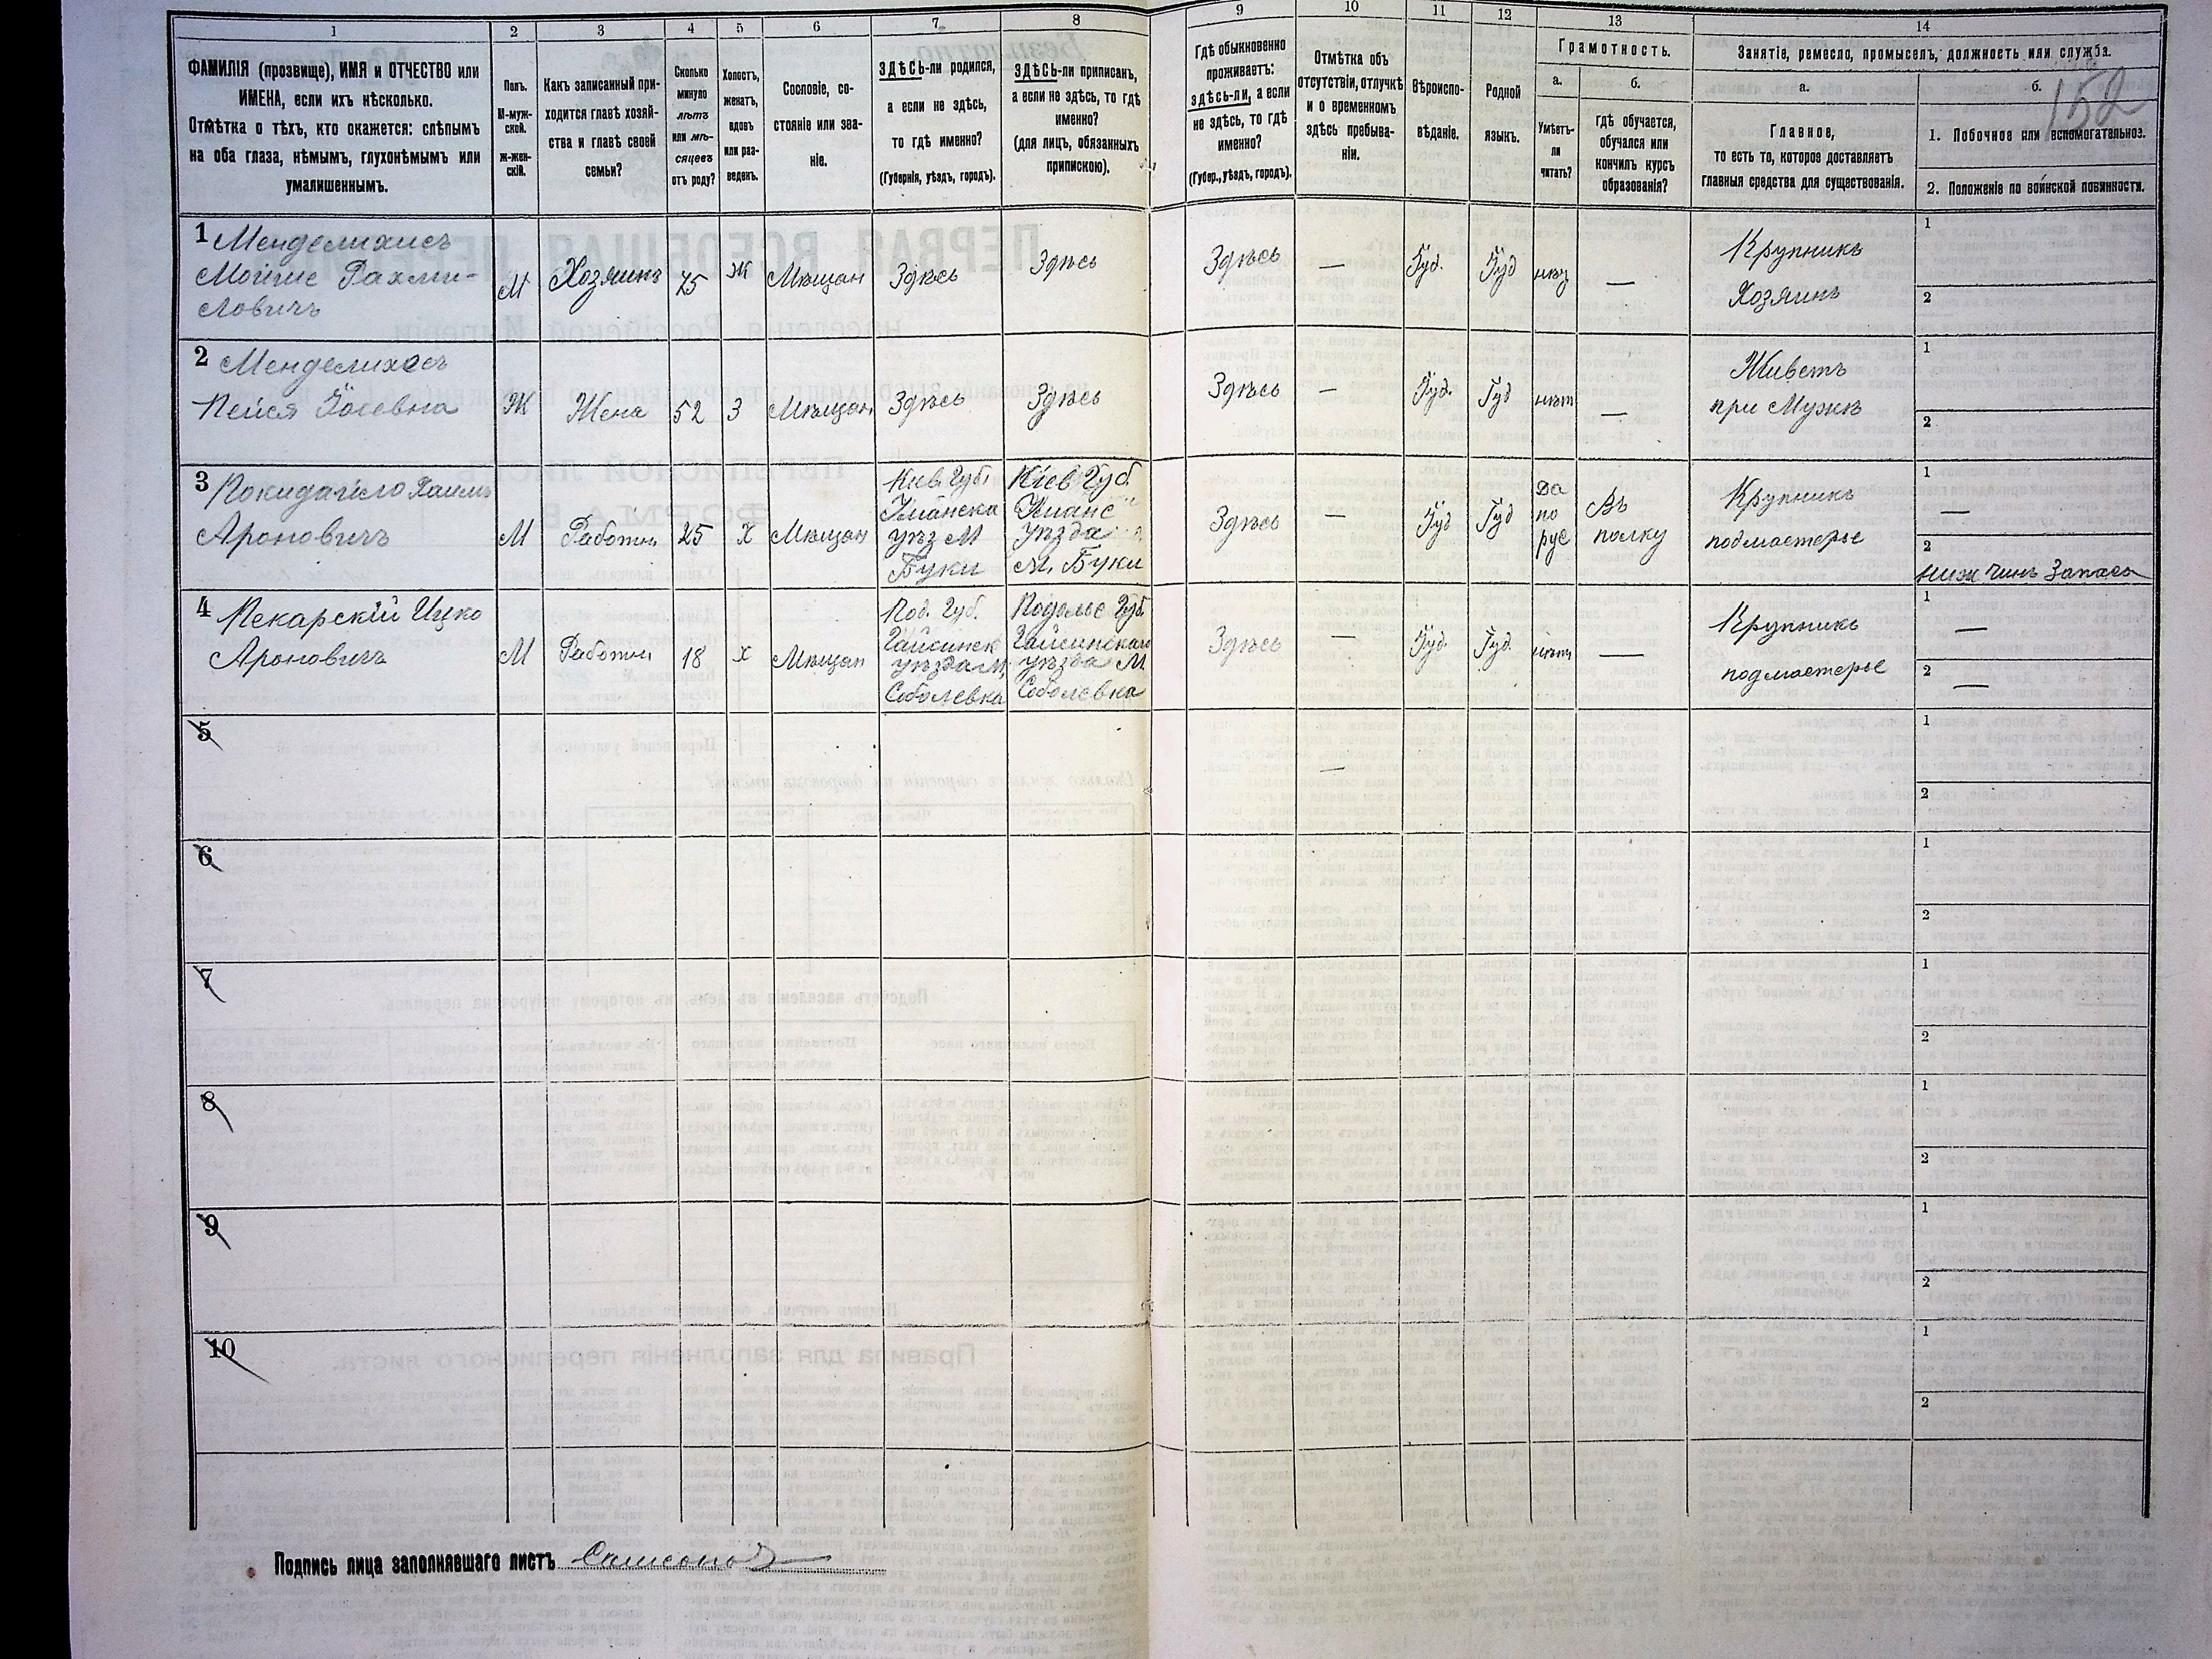 1 2 3 4 5 6 7 8 9 10 11 12 13 14
ФАМИЛІЯ (прозвище), ИМЯ и ОТЧЕСТВО или
ИМЕНА, если ихъ нѣсколько.
Отмѣтка о тѣхъ, кто окажется: слѣпымъ
на оба глаза, нѣмымъ, глухонѣмымъ или
умалишеннымъ.
Полъ.
М-муж-
ской.
ж-жен-
скій.
Какъ записанный при-
ходится главѣ хозяй-
ства и главѣ своей
семьи?
Сколько
минуло
лѣтъ
или мѣ-
сяцевъ
отъ роду?
Холостъ,
женатъ,
вдовъ
или раз-
веденъ.
Сословіе, со-
стояніе или зва-
ніе.
ЗДѢСЬ-ли родился,
а если не здѣсь,
то гдѣ именно?
(Губернія, уѣздъ, городъ).
ЗДѢСЬ-ли приписанъ,
а если не здѣсь, то гдѣ
именно?
(для лицъ, обязанныхъ
припискою).
Гдѣ обыкновенно
проживаетъ:
здѣсь-ли, а если
не здѣсь, то гдѣ
именно?
(Губер., уѣздъ, городъ).
Отмѣтка объ
отсутствіи, отлучкѣ
и о временномъ
здѣсь пребыва-
ніи.
Вѣроиспо-
вѣданіе.
Родной
языкъ.
Грамотность.
а.
Умѣетъ-
ли
читать?
б.
гдѣ обучается,
обучался или
кончилъ курсъ
образованія?
Занятіе, ремесло, промыселъ, должность или служба.
а.
Главное,
то есть то, которое доставляетъ
главныя средства для существованія.
б.
152
1. Побочное или вспомогательное.
2. Положеніе по воинской повинности.
1 Менделихисъ
Мойше Рахми-
ловичъ
М
Хозяинъ
75
Ж
Мѣщан
Здѣсь
Здѣсь
Здѣсь
—
Іуд.
Іуд
—
Крупникъ
Хозяинъ
1
2
2 Менделихесъ
Пейся Іосевна
Ж
Жена
52
З
Мѣщан
Здѣсь
Здѣсь
Здѣсь
—
Іуд.
Іуд
нѣт
—
Живетъ
при Мужѣ
1
2
3 Покидайло Хаимъ
Ароновичъ
М
Работн
25
Х
Мѣщан
Кіев. Губ.
Уманска
уѣз М
Буки
Кіев Губ
Уманс
уѣзда
М. Буки
Здѣсь
—
Іуд
Іуд
Да
по
рус
Въ
полку
Крупникъ
подмастерье
1
—
2
Нижн Чинъ Запаса
4 Пекарскій Ицко
Ароновичъ
М
Работн
18
х
Мѣщан
Под. Губ.
Гайсинск
уѣзда М,
Соболевка
Подольс Губ.
Гайсинскаго
уѣзда М
Соболевка
Здѣсь
—
Іуд
Іуд.
нѣт
—
Крупникъ
подмастерье
1
—
2
—
5
—
1
2
6
1
2
7
1
2
8
1
2
9
1
2
10
1
2
Подпись лица заполнявшаго листъ